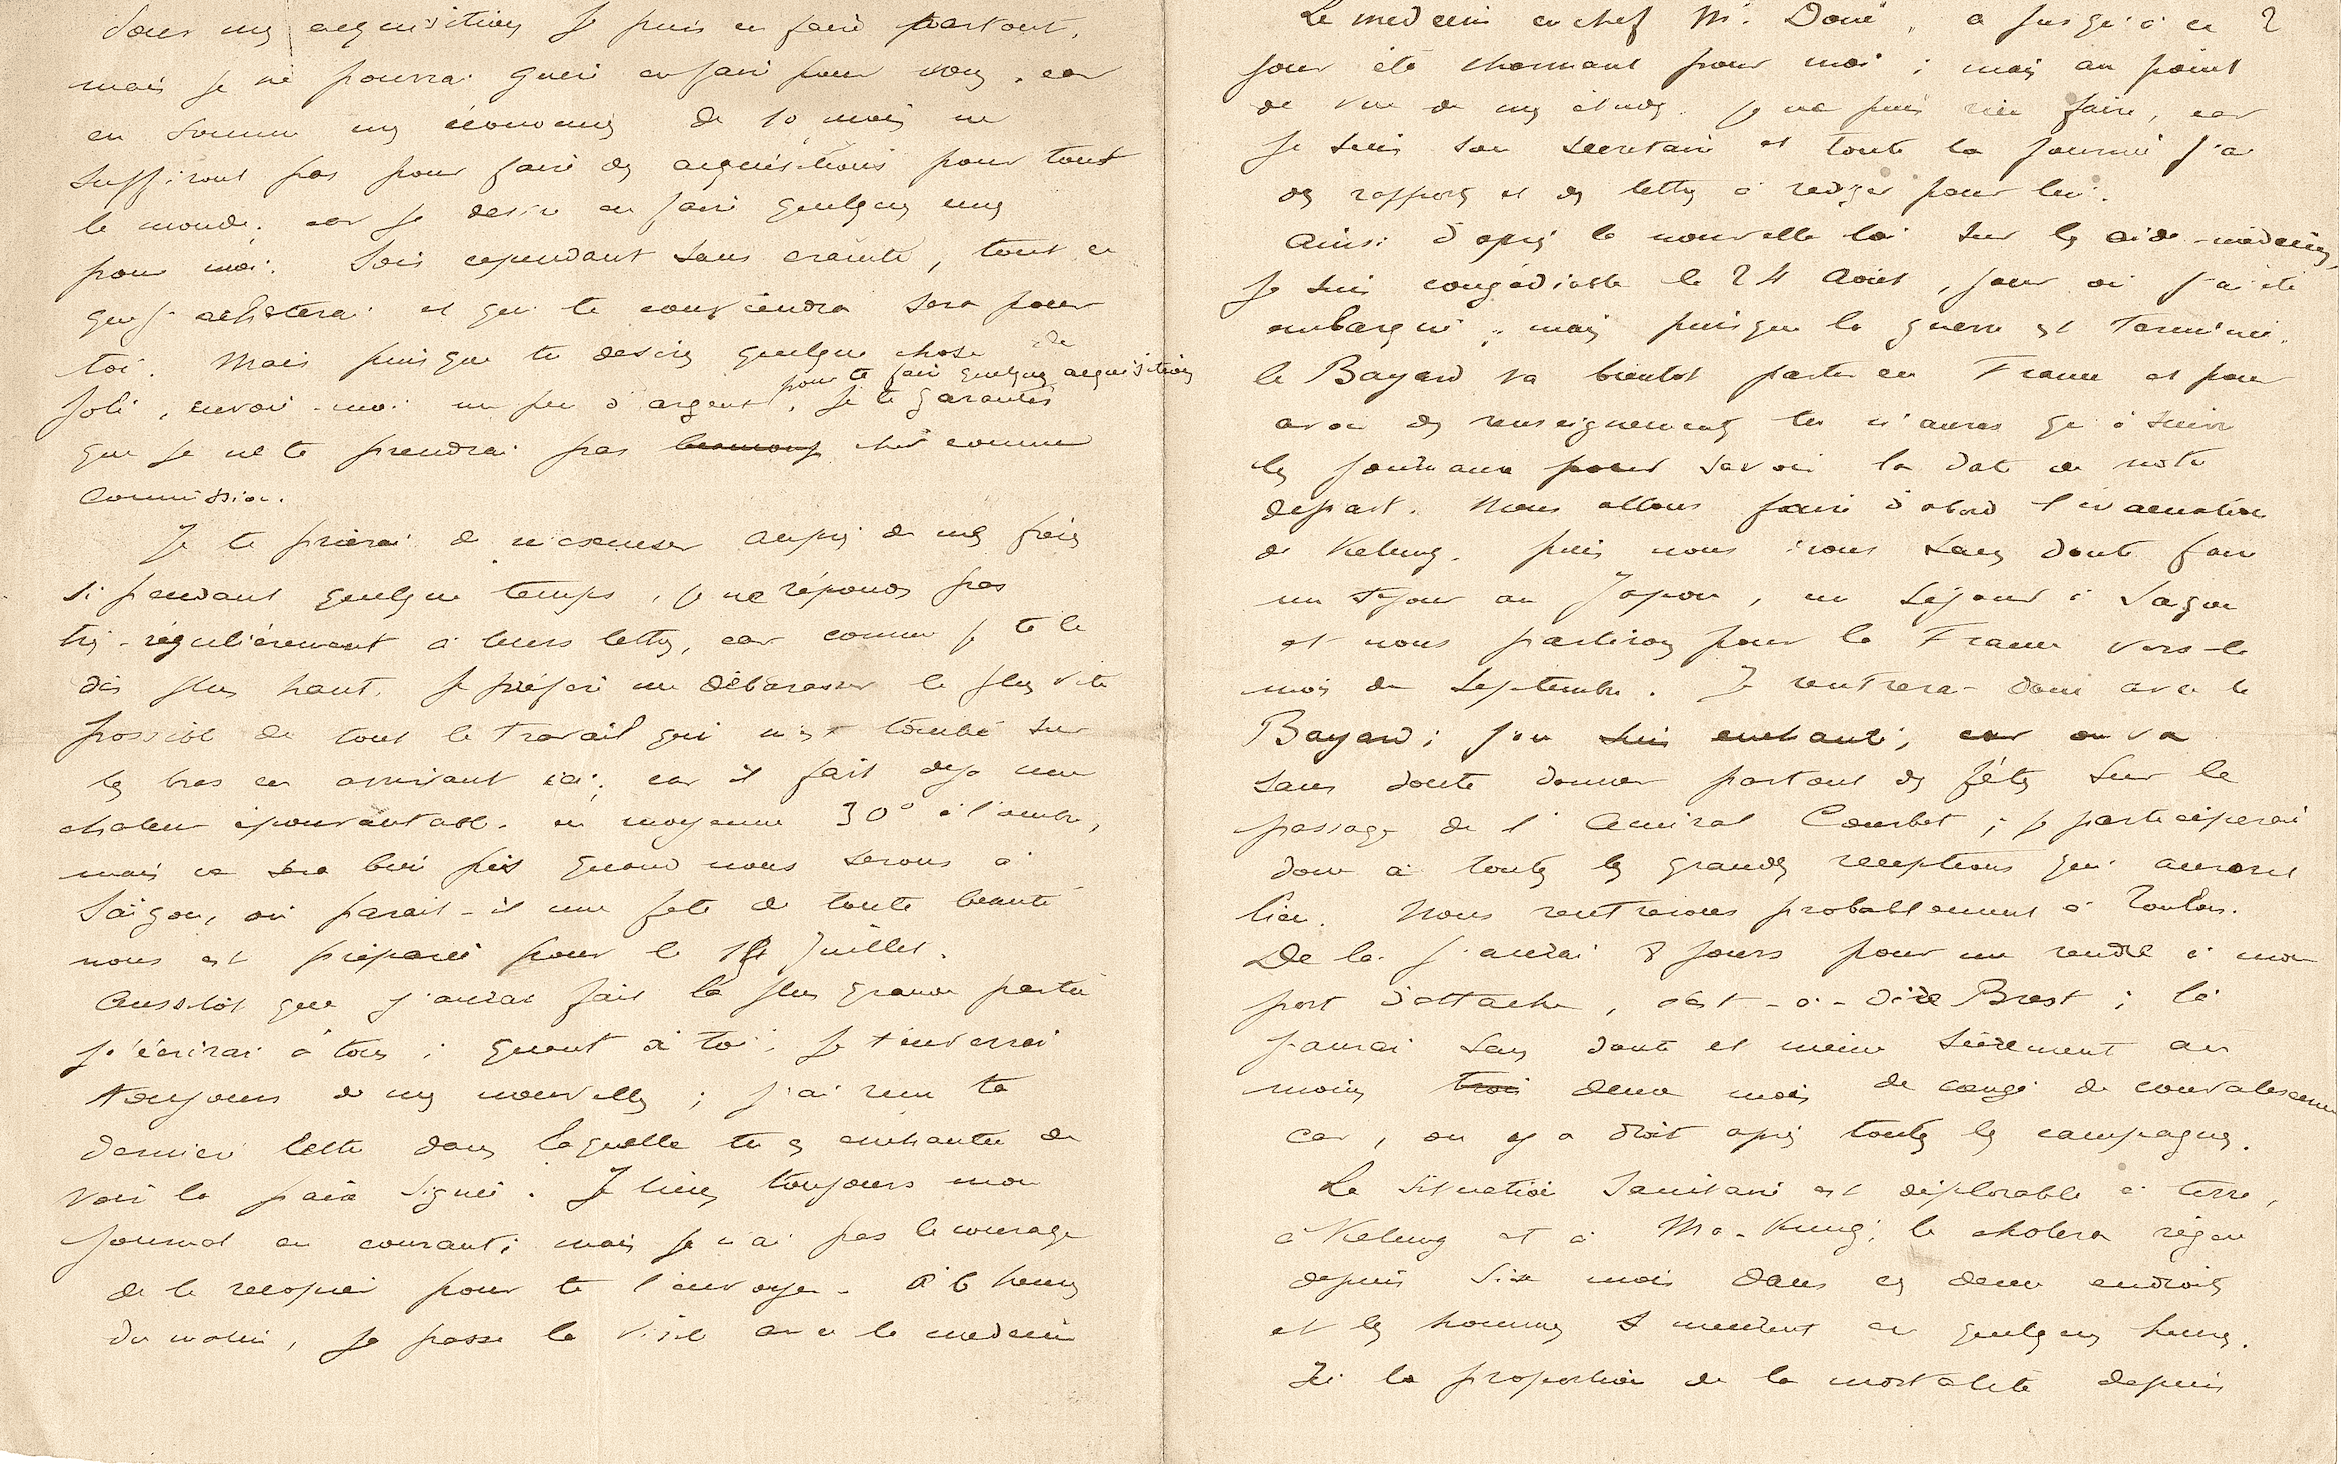 Dans mes acquisitions je puis en faire partout,
mais je ne pourrai guère en faire pour vous, car
en somme mes économies de 10 mois ne
suffiront pas pour faire des acquisitions pour tout
le monde, car je desire en faire quelques unes
pour moi. Sois cependant sans crainte, tout ce
que j'achèterai et qui te conviendra sera pour
toi. Mais puisque tu desires quelque chose de
joli, envoie-moi un peu d'argent, pour te faire quelques acquisitions je te garantis
que je ne te prendrai pas beaucoup cher comme
commission.
Je te prierai de m'excuser auprès de mes frères
si pendant quelque temps, je ne réponds pas
très-régulièrement à leurs lettres, car comme je te le
dis plus haut, je préfère me débarasser le plus vite
possible de tout le travail qui m'est tombé sur
les bras en arrivant ici; car il fait deja une
chaleur épouvantable, en moyenne 30° à l'ombre,
mais ce sera bien pis quand nous serons à
Saïgon, où parait-il une fete de toute beauté
nous est préparée pour le 14 Juillet.
Aussitôt que j'aurai fait la plus grande partie
j'écrirai à tous; quant à toi, je t'enverrai
toujours de mes nouvelles; j'ai reçu ta
dernière lettre dans laquelle tu es enchantée de
voir la paix signée. Je tiens toujours mon
journal en courant; mais je n'ai pas le courage
de le recopier pour te l'envoyer. A 6 heures
du matin, je passe la visite avec le medecin
Le medecin en chef Mr. Doué, a jusqu'à ce
jour été charmant pour moi; mais au point
de vue de mes études je ne puis rien faire, car
je suis son secretaire et toute la journée j'ai
des rapports et des lettres à rediger pour lui.
Ainsi d'après la nouvelle loi sur les aide-médecins,
je suis congédiable le 24 Août, jour où j'ai été
embarqué; mais puisque la guerre est terminée,
le Bayard va bientot partir en France et pour
avoir des renseignements tu n'auras qu'à suivre
les journaux pour savoir la date de notre
depart. Nous allons faire d'abord l'évacuation
de Kelung, puis nous irons sans doute faire
un sejour au Japon, un séjour à Saïgon
et nous partirons pour la France vers le
mois de Septembre. Je rentrerai donc avec le
Bayard; j'en suis enchanté, car on va
sans doute donner partout des fêtes sur le
passage de l'Amiral Courbet; je participerai
donc à toutes les grandes receptions qui auront
lieu. Nous rentrerons probablement à Toulon.
De là j'aurai 8 jours pour me rendre à mon
port d'attache, c'est-à-dire Brest; là
j'aurai sans doute et même sûrement au
moins trois deux mois de congé de convalescence
car, on y a droit après toutes les campagnes.
La situation sanitaire est déplorable à terre,
à Kelung et à Ma-Kung; le cholera règne
depuis six mois dans ces deux endroits
et les hommes y meurent en quelques heures.
Ici la proportion de la mortalité depuis